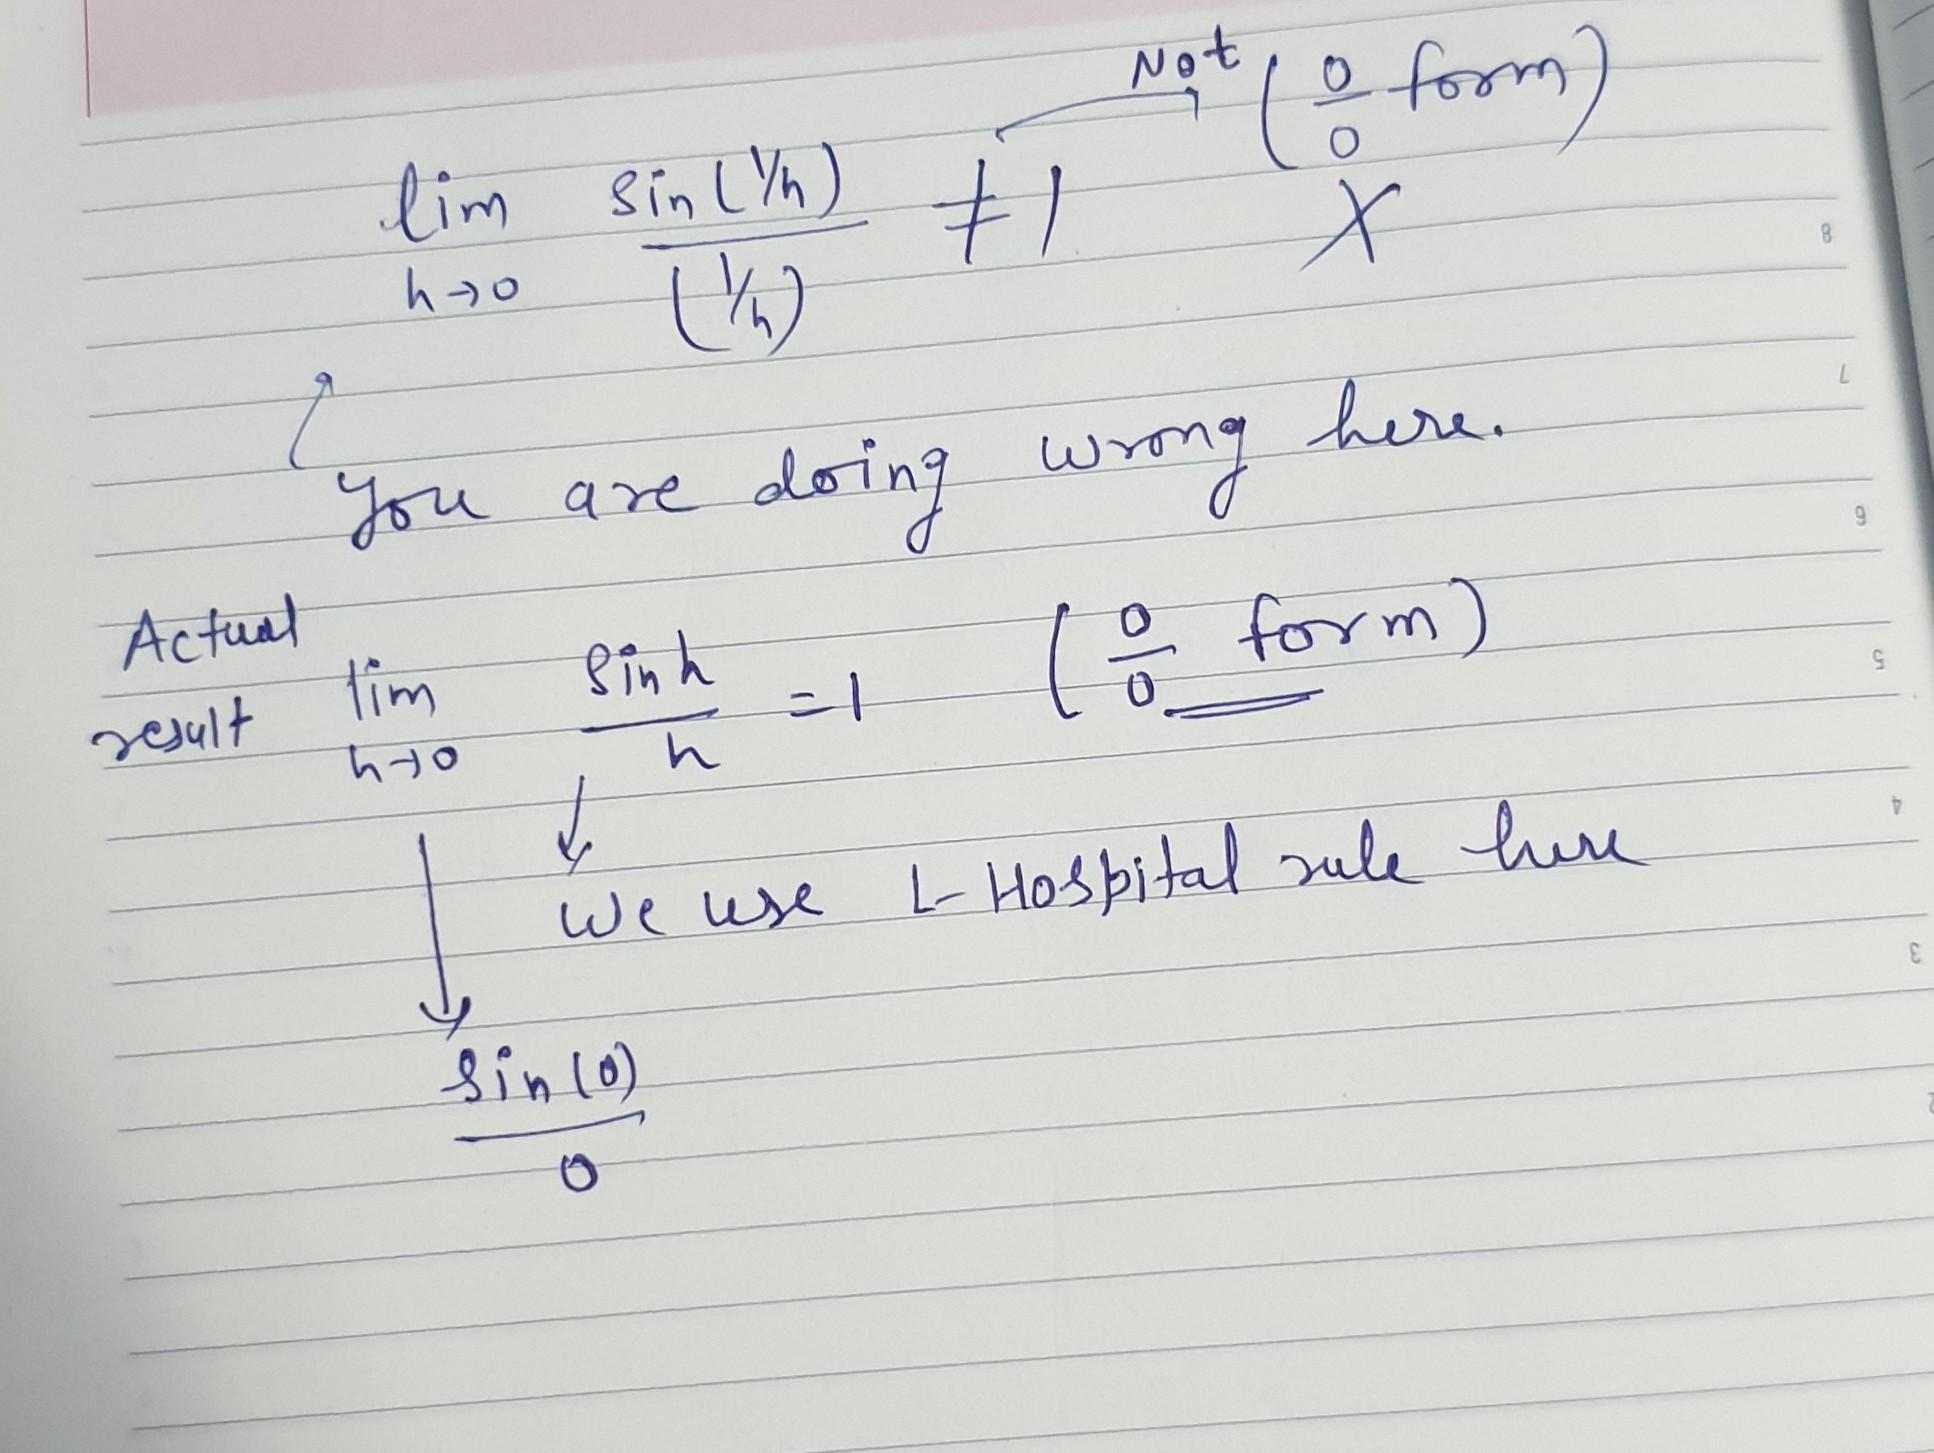 Not (0/0 form)
lim h→0 sin(1/h)/(1/h) ≠ 1 X
You are doing wrong here.
Actual
result lim h→0 sin h/h = 1 (0/0 form)
We use L-Hospital rule here
sin(0)/0
8
7
6
5
4
3
2